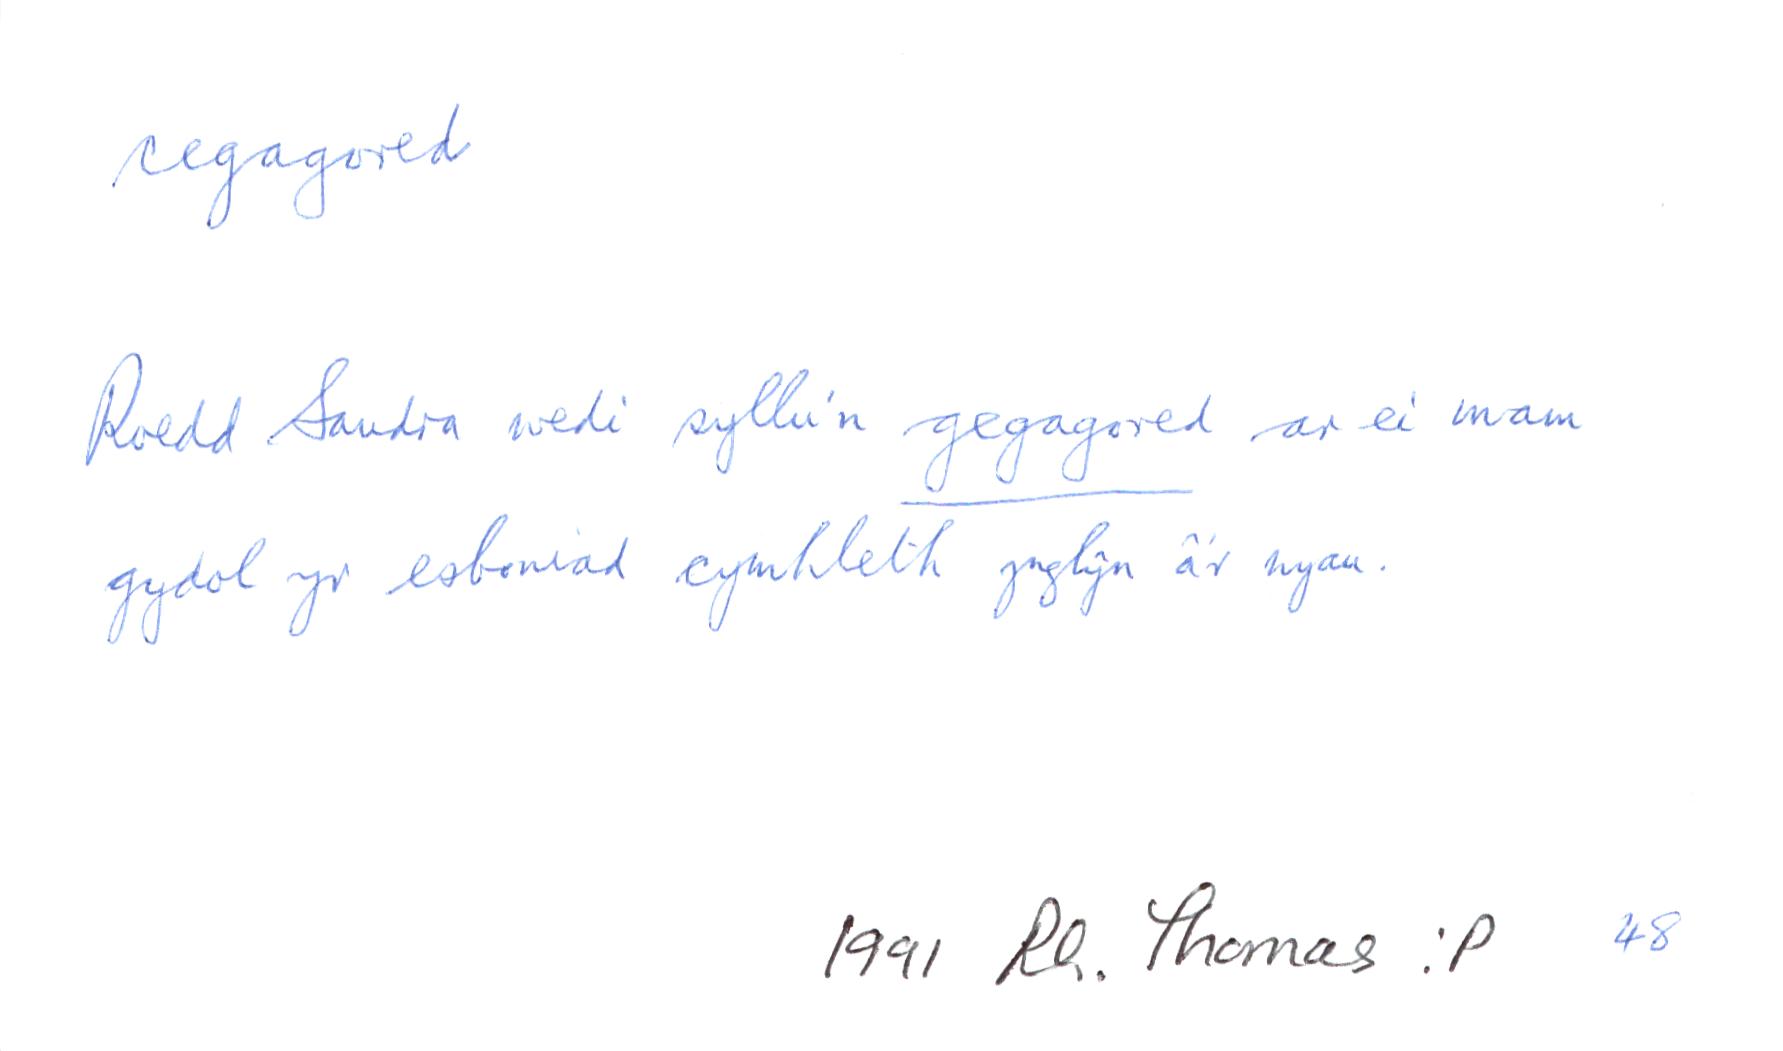 cegagored
Roedd Sandra wedi syllu'n gegagored ar ei mam
gydol yr esboniad cymhleth ynglŷn â'r nyau.
1991 Rh. Thomas :P 48